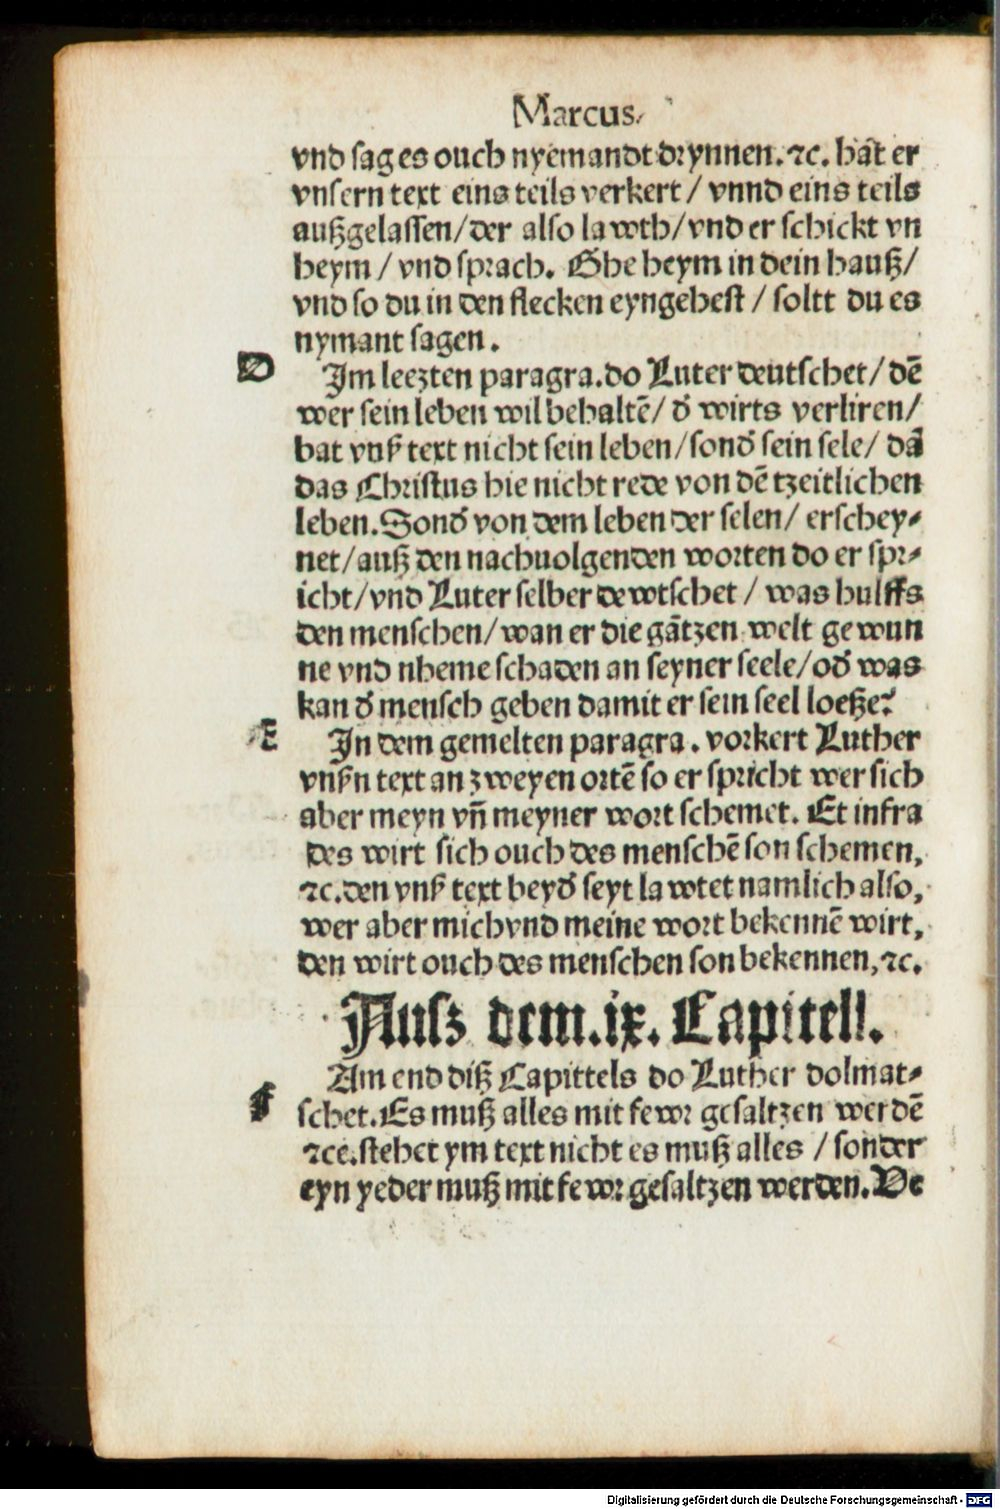 Marcus.
vnd sag es ouch nyemandt drynnen. ⁊c. hat er
vnsern text eins teils verkert / vnnd eins teils
außgelassen/der also lawth/vnd er schickt yn
heym / vnd sprach. Ghe heym in dein hauß/
vnd so du in den flecken eyngehest / soltt du es
nymant sagen.
D
Jm leezten paragra. do Luter deutschet/ dē
wer sein leben wil behaltē/ ď wirts verliren/
hat vnß text nicht sein leben/sonď sein sele/ dā
das Christus hie nicht rede von dē tzeitlichen
leben. Sonď von dem leben der selen/ erschey⸗
net/auß den nachuolgenden worten do er spr⸗
icht/vnd Luter selber dewtschet / was hulffs
den menschen/ wan er die gātzen welt gewun
ne vnd nheme schaden an seyner seele/oď was
kan ď mensch geben damit er sein seel loeße?
E
Jn dem gemelten paragra. vorkert Luther
vnßn text an zweyen ortē so er spricht wer sich
aber meyn vn̄ meyner wort schemet. Et infra
des wirt sich ouch des menschē son schemen,
⁊c. den vnß text beyď seyt lawtet namlich also,
wer aber mich vnd meine wort bekennē wirt,
den wirt ouch des menschen son bekennen, ⁊c.
Ausz dem. ix. Capitell.
Am end diß Capittels do Luther dolmat⸗
F
schet. Es muß alles mit fewr gesaltzen werdē
⁊ce. stehet ym text nicht es muß alles / sonder
eyn yeder muß mit fewr gesaltzen werden. Ve
Digitalisierung gefördert durch die Deutsche Forschungsgemeinschaft - DFG